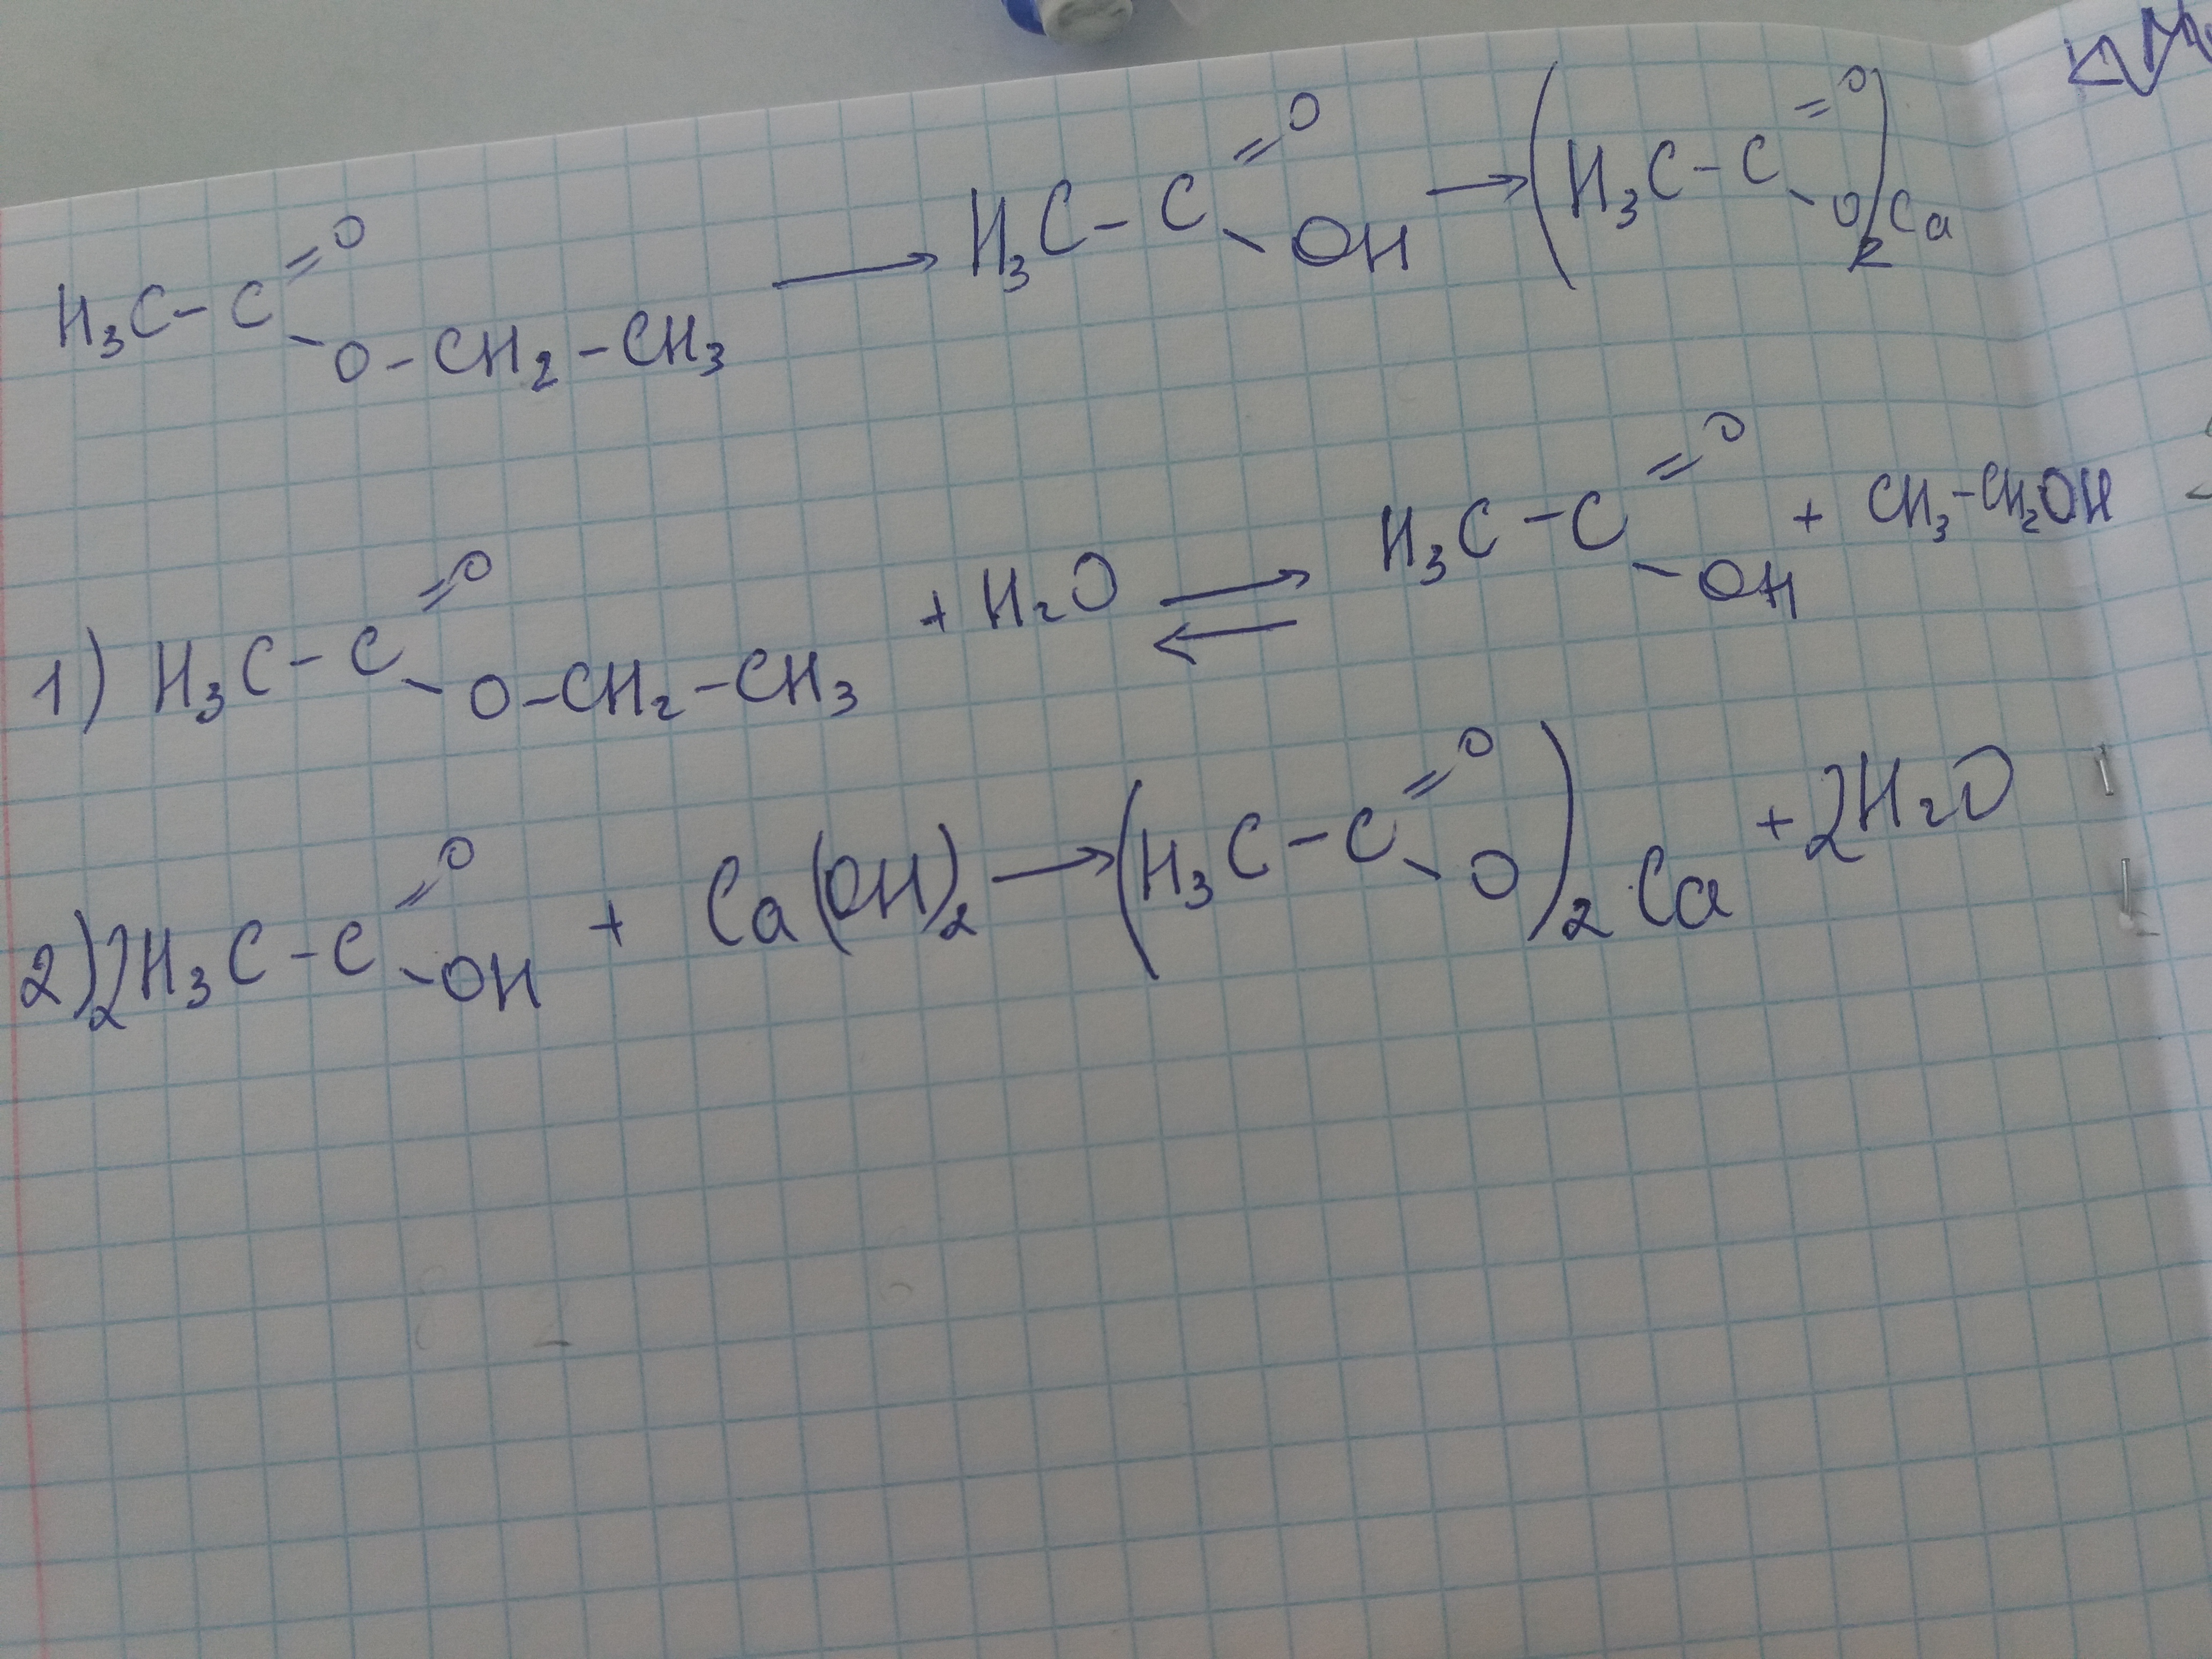 H₃C-C=O-O-CH₂-CH₃ → H₃C-C=O-OH → (H₃C-C=O-O)₂Ca
1) H₃C-C=O-O-CH₂-CH₃ + H₂O ⇄ H₃C-C=O-OH + CH₃-CH₂OH
2) 2H₃C-C=O-OH + Ca(OH)₂ → (H₃C-C=O-O)₂Ca + 2H₂O